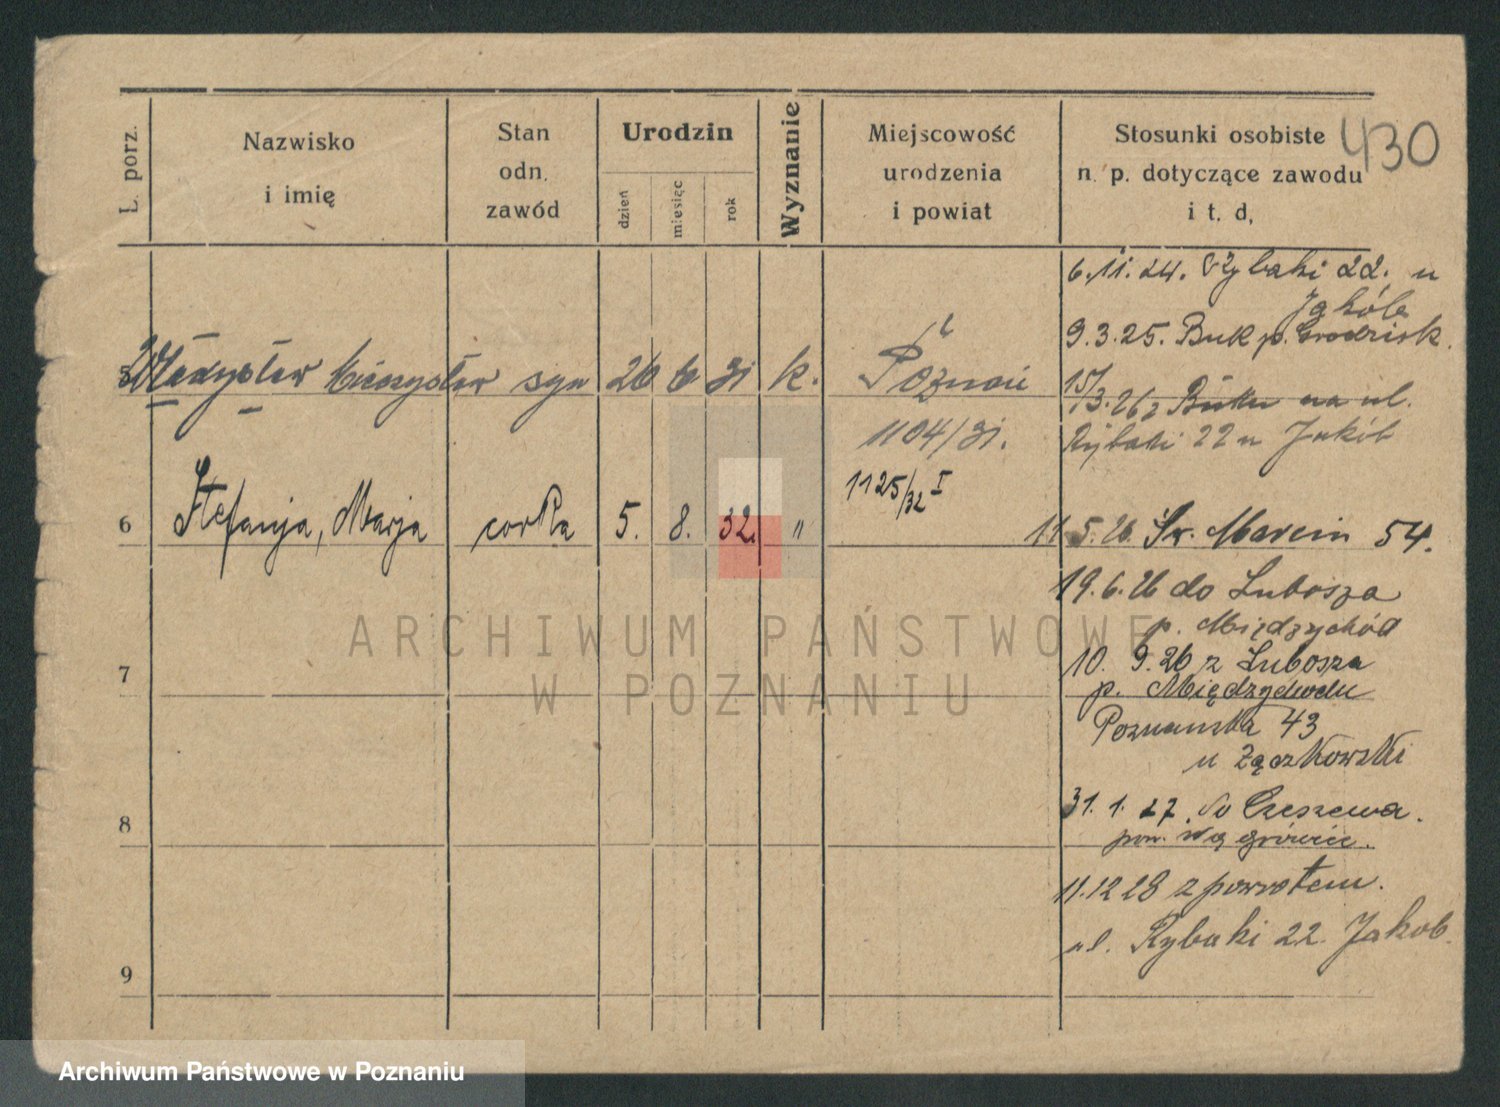 L. porz.
Nazwisko
i imię
Stan
odn.
zawód
Urodzin
dzień
miesiąc
rok
Wyznanie
Miejscowość
urodzenia
i powiat
Stosunki osobiste
n. p. dotyczące zawodu
i t. d,
430
6.11.24. Rybaki 22. u
Jakóba
9.3.25. Buk p. Grodzisk.
5 Władysław Mieczysław syn 26 6 31 k. Poznań
1104/31.
15/3.26 z Buku na ul.
Rybaki 22 u Jakób
6 Stefanja, Marja corka 5. 8. 32. " 1125/32 I
11.5.26. Św. Marcin 54.
19.6.26 do Lubosza
p. Międzychód
10. 9.26 z Lubosza
p. Międzychodu
Poznańska 43
u Zączkowski
31. 1. 27. do Czeszewa.
pow. Wągrówiec.
11.12 28 z powrotem.
ul. Rybaki 22. Jakob.
7
8
9
ARCHIWUM PAŃSTWOWE
W POZNANIU
Archiwum Państwowe w Poznaniu